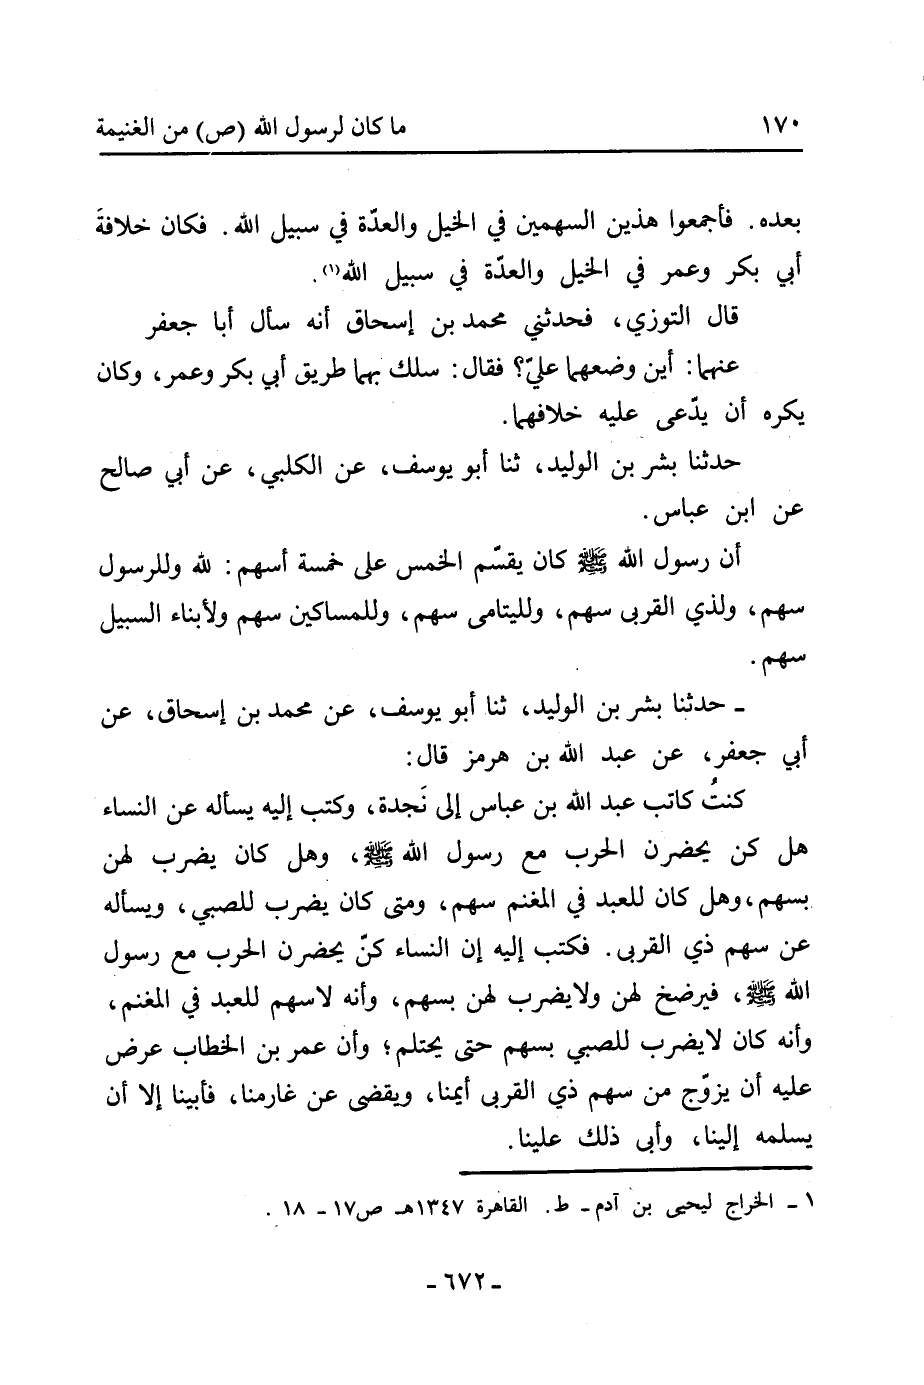 ١٧٠ ما كان لرسول الله (ص) من الغنيمة
بعده. فأجمعوا هذين السهمين في الخيل والعدّة في سبيل الله. فكان خلافةَ
أبي بكر وعمر في الخيل والعدّة في سبيل الله(١).
قال التوزي، فحدثني محمد بن إسحاق أنه سأل أبا جعفر
عنهما: أين وضعهما عليّ؟ فقال: سلك بهما طريق أبي بكر وعمر، وكان
يكره أن يدّعى عليه خلافهما.
حدثنا بشر بن الوليد، ثنا أبو يوسف، عن الكلبي، عن أبي صالح
عن ابن عباس.
أن رسول الله ﷺ كان يقسّم الخمس على خمسة أسهم: لله وللرسول
سهم، ولذي القربى سهم، ولليتامى سهم، وللمساكين سهم ولأبناء السبيل
سهم.
ـ حدثنا بشر بن الوليد، ثنا أبو يوسف، عن محمد بن إسحاق، عن
أبي جعفر، عن عبد الله بن هرمز قال:
كنتُ كاتب عبد الله بن عباس إلى نَجدة، وكتب إليه يسأله عن النساء
هل كن يحضرن الحرب مع رسول الله ﷺ، وهل كان يضرب لهن
بسهم،وهل كان للعبد في المغنم سهم، ومتى كان يضرب للصبي، ويسأله
عن سهم ذي القربى. فكتب إليه إن النساء كنّ يحضرن الحرب مع رسول
الله ﷺ، فيرضخ لهن ولايضرب لهن بسهم، وأنه لاسهم للعبد في المغنم،
وأنه كان لايضرب للصبي بسهم حتى يحتلم؛ وأن عمر بن الخطاب عرض
عليه أن يزوّج من سهم ذي القربى أيمنا، ويقضى عن غارمنا، فأبينا إلا أن
يسلمه إلينا، وأبى ذلك علينا.
١ ـ الخراج ليحيى بن آدم ـ ط. القاهرة ١٣٤٧هـ ص١٧ ـ ١٨ .
ـ ٦٧٢ ـ